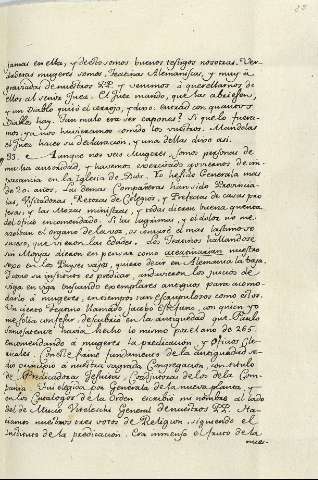 jamas en ella, y de esto somos buenos testigos nosotras. Ver
daderas mugeres somos, Jesuitas Alemaniscas, y muy a
graviadas de nuestros PP. y venimos á querellarnos de
ellos al señor Juez. El Juez mandó, que las abriesen,
y un Diablo quitó el cerrojo, y dixo: Entrad con quantos
Diablos hay. Tan malo era ser capones? Si que lo fuera-
mos, ya nos huvieramos comido los vuestros. Mandolas
el Juez hacer su declaracion, y una dellas dixo asi.
93. Aunque nos veis Mugeres, somos personas de
mucha autoridad, y havemos exercitado govierno de im-
portancia en la Iglesia de Dios. Yo he sido Generala mas
de 20 años. Las demas Compañeras han sido Provincia-
las, Visitadoras, Retoras de Colegios, y Prefectas de casas pro
fesas, y las Mozas ministras, y todas dieron buena quenta
del oficio encomendado. Si las lagrimas, y el dolor no me
turban el organo de la voz, os contaré el mas lastimoso
suceso, que vieron las edades. Los Jesuitas hallandose
sin Monjas dieron en pensar como
en los Payses vajos, quiero decir en Alemania la baja.
Y como su instituto es predicar, anduvieron los juncos de
viga en viga buscando exemplares antiguos para acomo-
darlo á mugeres, en tiempos tan escrupulosos como estos.
Un cierto de ymo llamado Jacobo con quien yo
me solia confesar descubrió en la antiguedad que Paulo
Samosateno havia hecho lo mismo por el año de 265.
encomendando á mugeres la predicacion, y Oficios Cle-
ricales. Con este sano fundamento de la antiguedad se
dio principio á nuestra sagrada Congregacion, con titulo
de Predicadoras Jesuitas Coadjutoras de los de la Com-
pañia. Fui elegida por Generala de la nueva planta, y
en los Catalogos de la Orden escribio mi nombre al lado
del de Mucio Viteleschi General de nuestros PP. Ha-
ciamos nuestros tres votos de Religion, siguiendo el
instituto de la predicacion. Era inmenso el fruto de la